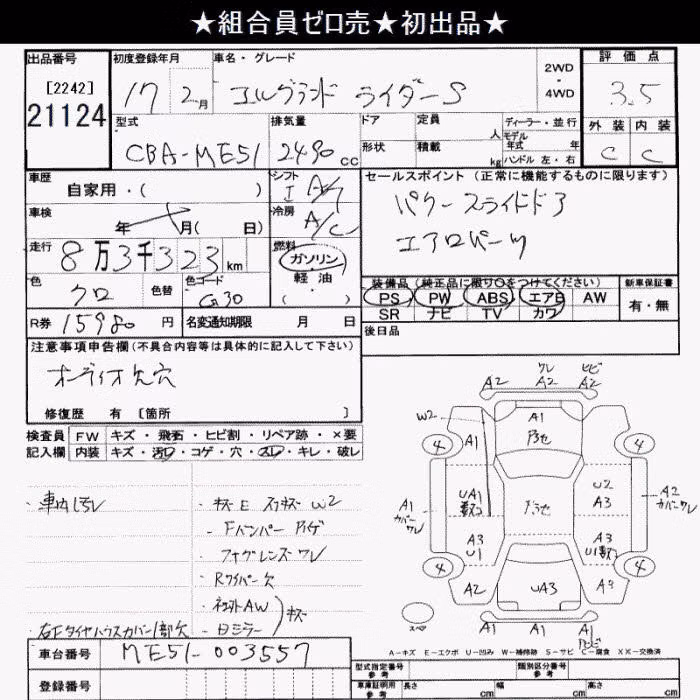 ★組合員ゼロ売★初出品★
出品番号
[2242]
21124
初度登録年月
17 2月
車名・グレード
エルグランド ライダーS
2WD
・
4WD
評価点
3.5
外装 内装
C C
型式
CBA-ME51
排気量
2490cc
ドア
形状
定員
人
積載
kg
ディーラー・並行
モデル
年式 年
ハンドル 左・右
車歴
自家用・( )
シフト
I A/T
車検
年 月( 日)
冷房
A/C
走行
8万3千323km
燃料
ガソリン
軽油
( )
色
クロ
色替
色コード
G30
R券 15980円
名変通知期限 月 日
セールスポイント(正常に機能するものに限ります)
パワースライドドア
エアロパーツ
装備品(純正品に限り○をつけてください)
PS PW ABS エアB AW
SR ナビ TV カワ
新車保証書
有・無
後日品
注意事項申告欄(不具合内容等は具体的に記入して下さい)
オーディオ欠穴
修復歴 有 [箇所 ]
検査員
記入欄
FW キズ・飛石・ヒビ割・リペア跡・×要
内装 キズ・汚レ・コゲ・穴・スレ・キレ・破レ
・車内汚レ
・右Fタイヤハウスカバー1部欠
・キズE スリキズ W2
・Fバンパー
・フォグレンズワレ
・Rワイパー欠
・ネジットAW
・日ミラー
キズ
ワレ ヒビ
A2 A2 A2
W2
A1
A1
4 4
A1
カバーワレ
UA1
U2
A3
A2
カバーワレ
A3
U1
A3
U1
4 4
A2
UA3
A3
A1 A1 A1
ヒビ
スペア
A−キズ E−エクボ U−凹み W−補修跡 S−サビ C−腐食 X X−交換済
車台番号
ME51-003557
登録番号
型式指定番号
参考
類別区分番号
参考
車庫証明用
参考
長さ cm
幅 cm
高さ cm